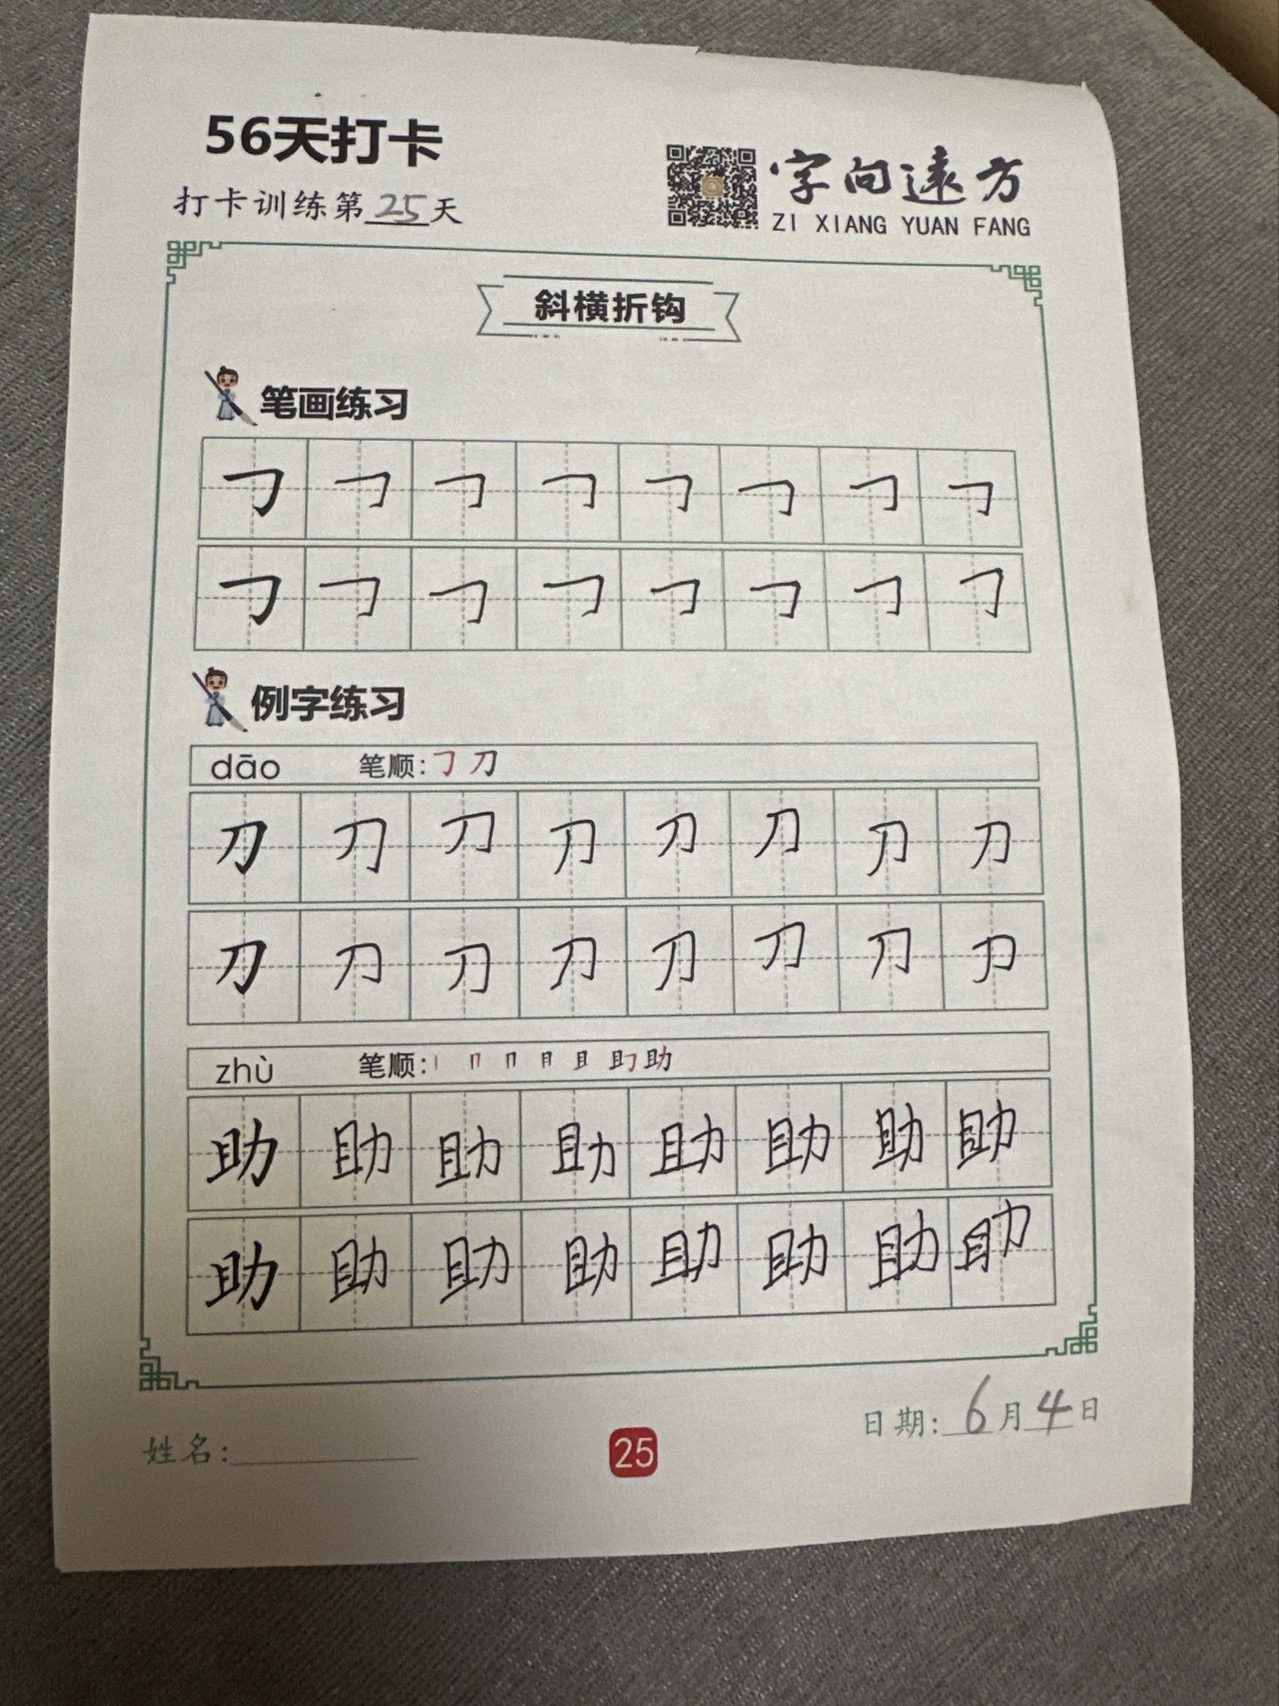 56天打卡
打卡训练第25天
字向遠方
ZI XIANG YUAN FANG
斜横折钩
笔画练习
㇆ ㇆ ㇆ ㇆ ㇆ ㇆ ㇆ ㇆
㇆ ㇆ ㇆ ㇆ ㇆ ㇆ ㇆ ㇆
例字练习
dāo 笔顺:㇆ 刀
刀 刀 刀 刀 刀 刀 刀 刀
刀 刀 刀 刀 刀 刀 刀 刀
zhù 笔顺: 丨 冂 冂 月 且 助 助
助 助 助 助 助 助 助 助
助 助 助 助 助 助 助 助
日期: 6月4日
姓名:
25